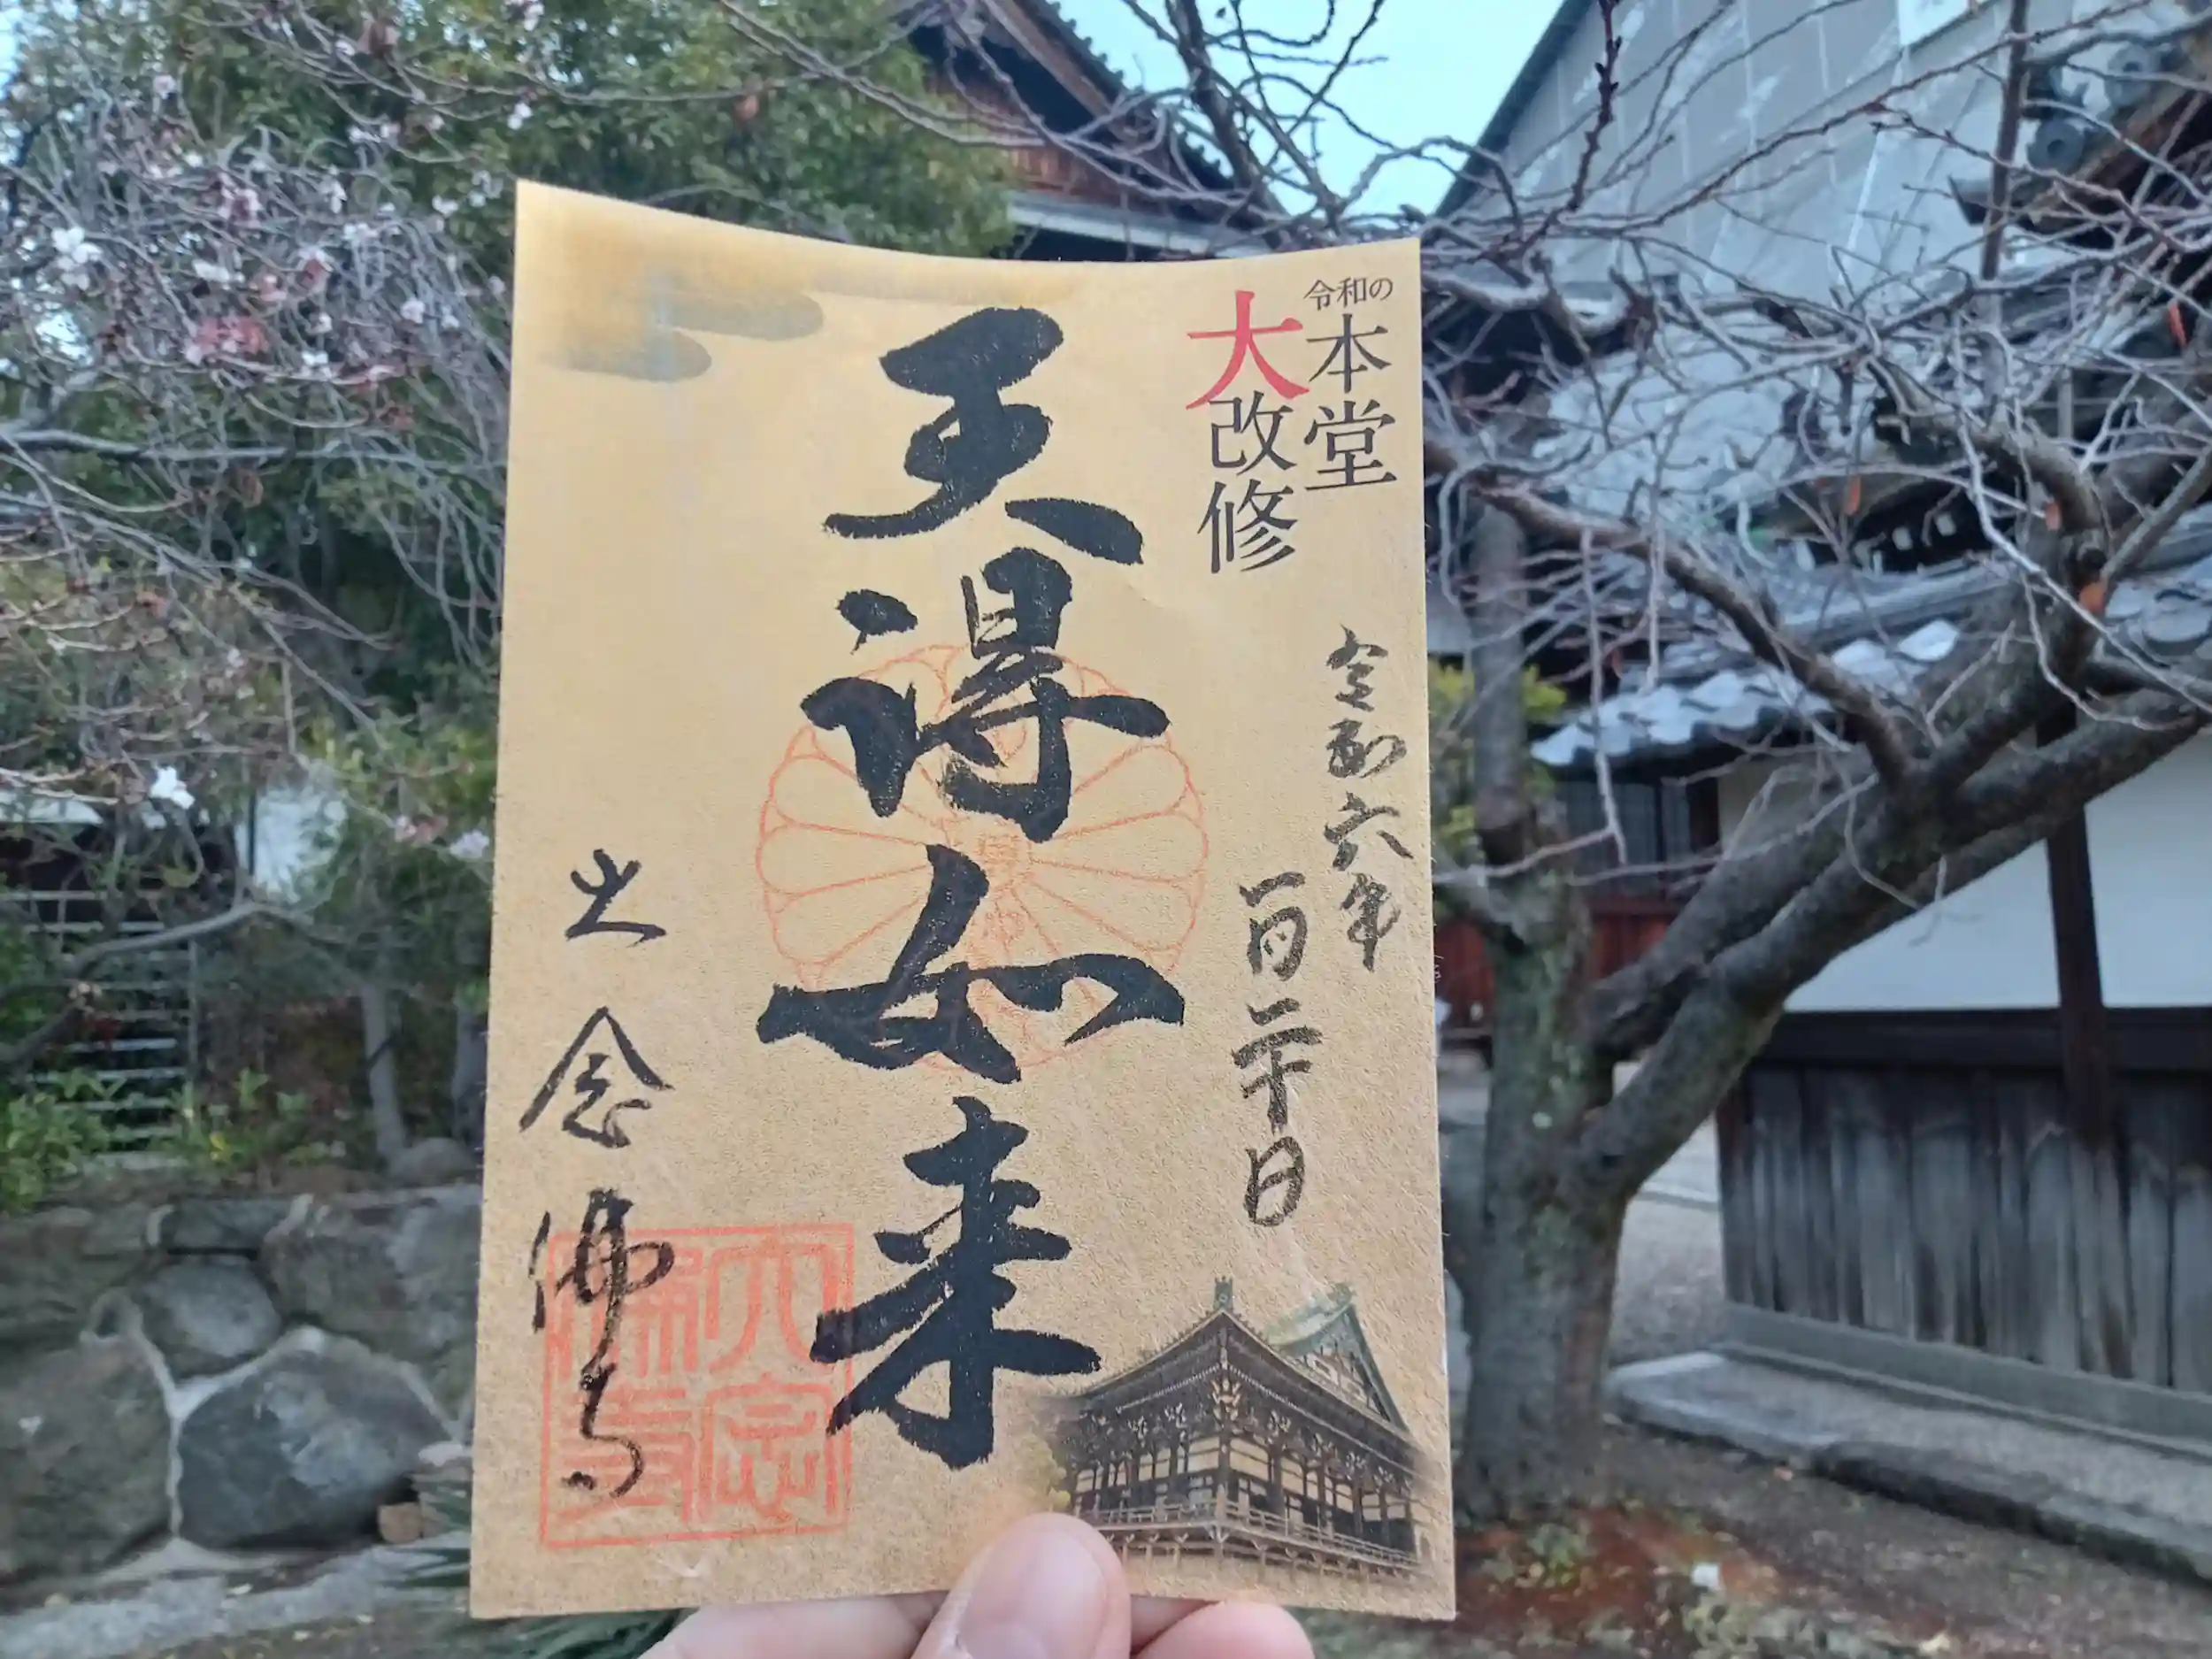 令和の
本堂
大改修
令和六年
一月二十日
天得如来
大念佛寺
大念
佛寺